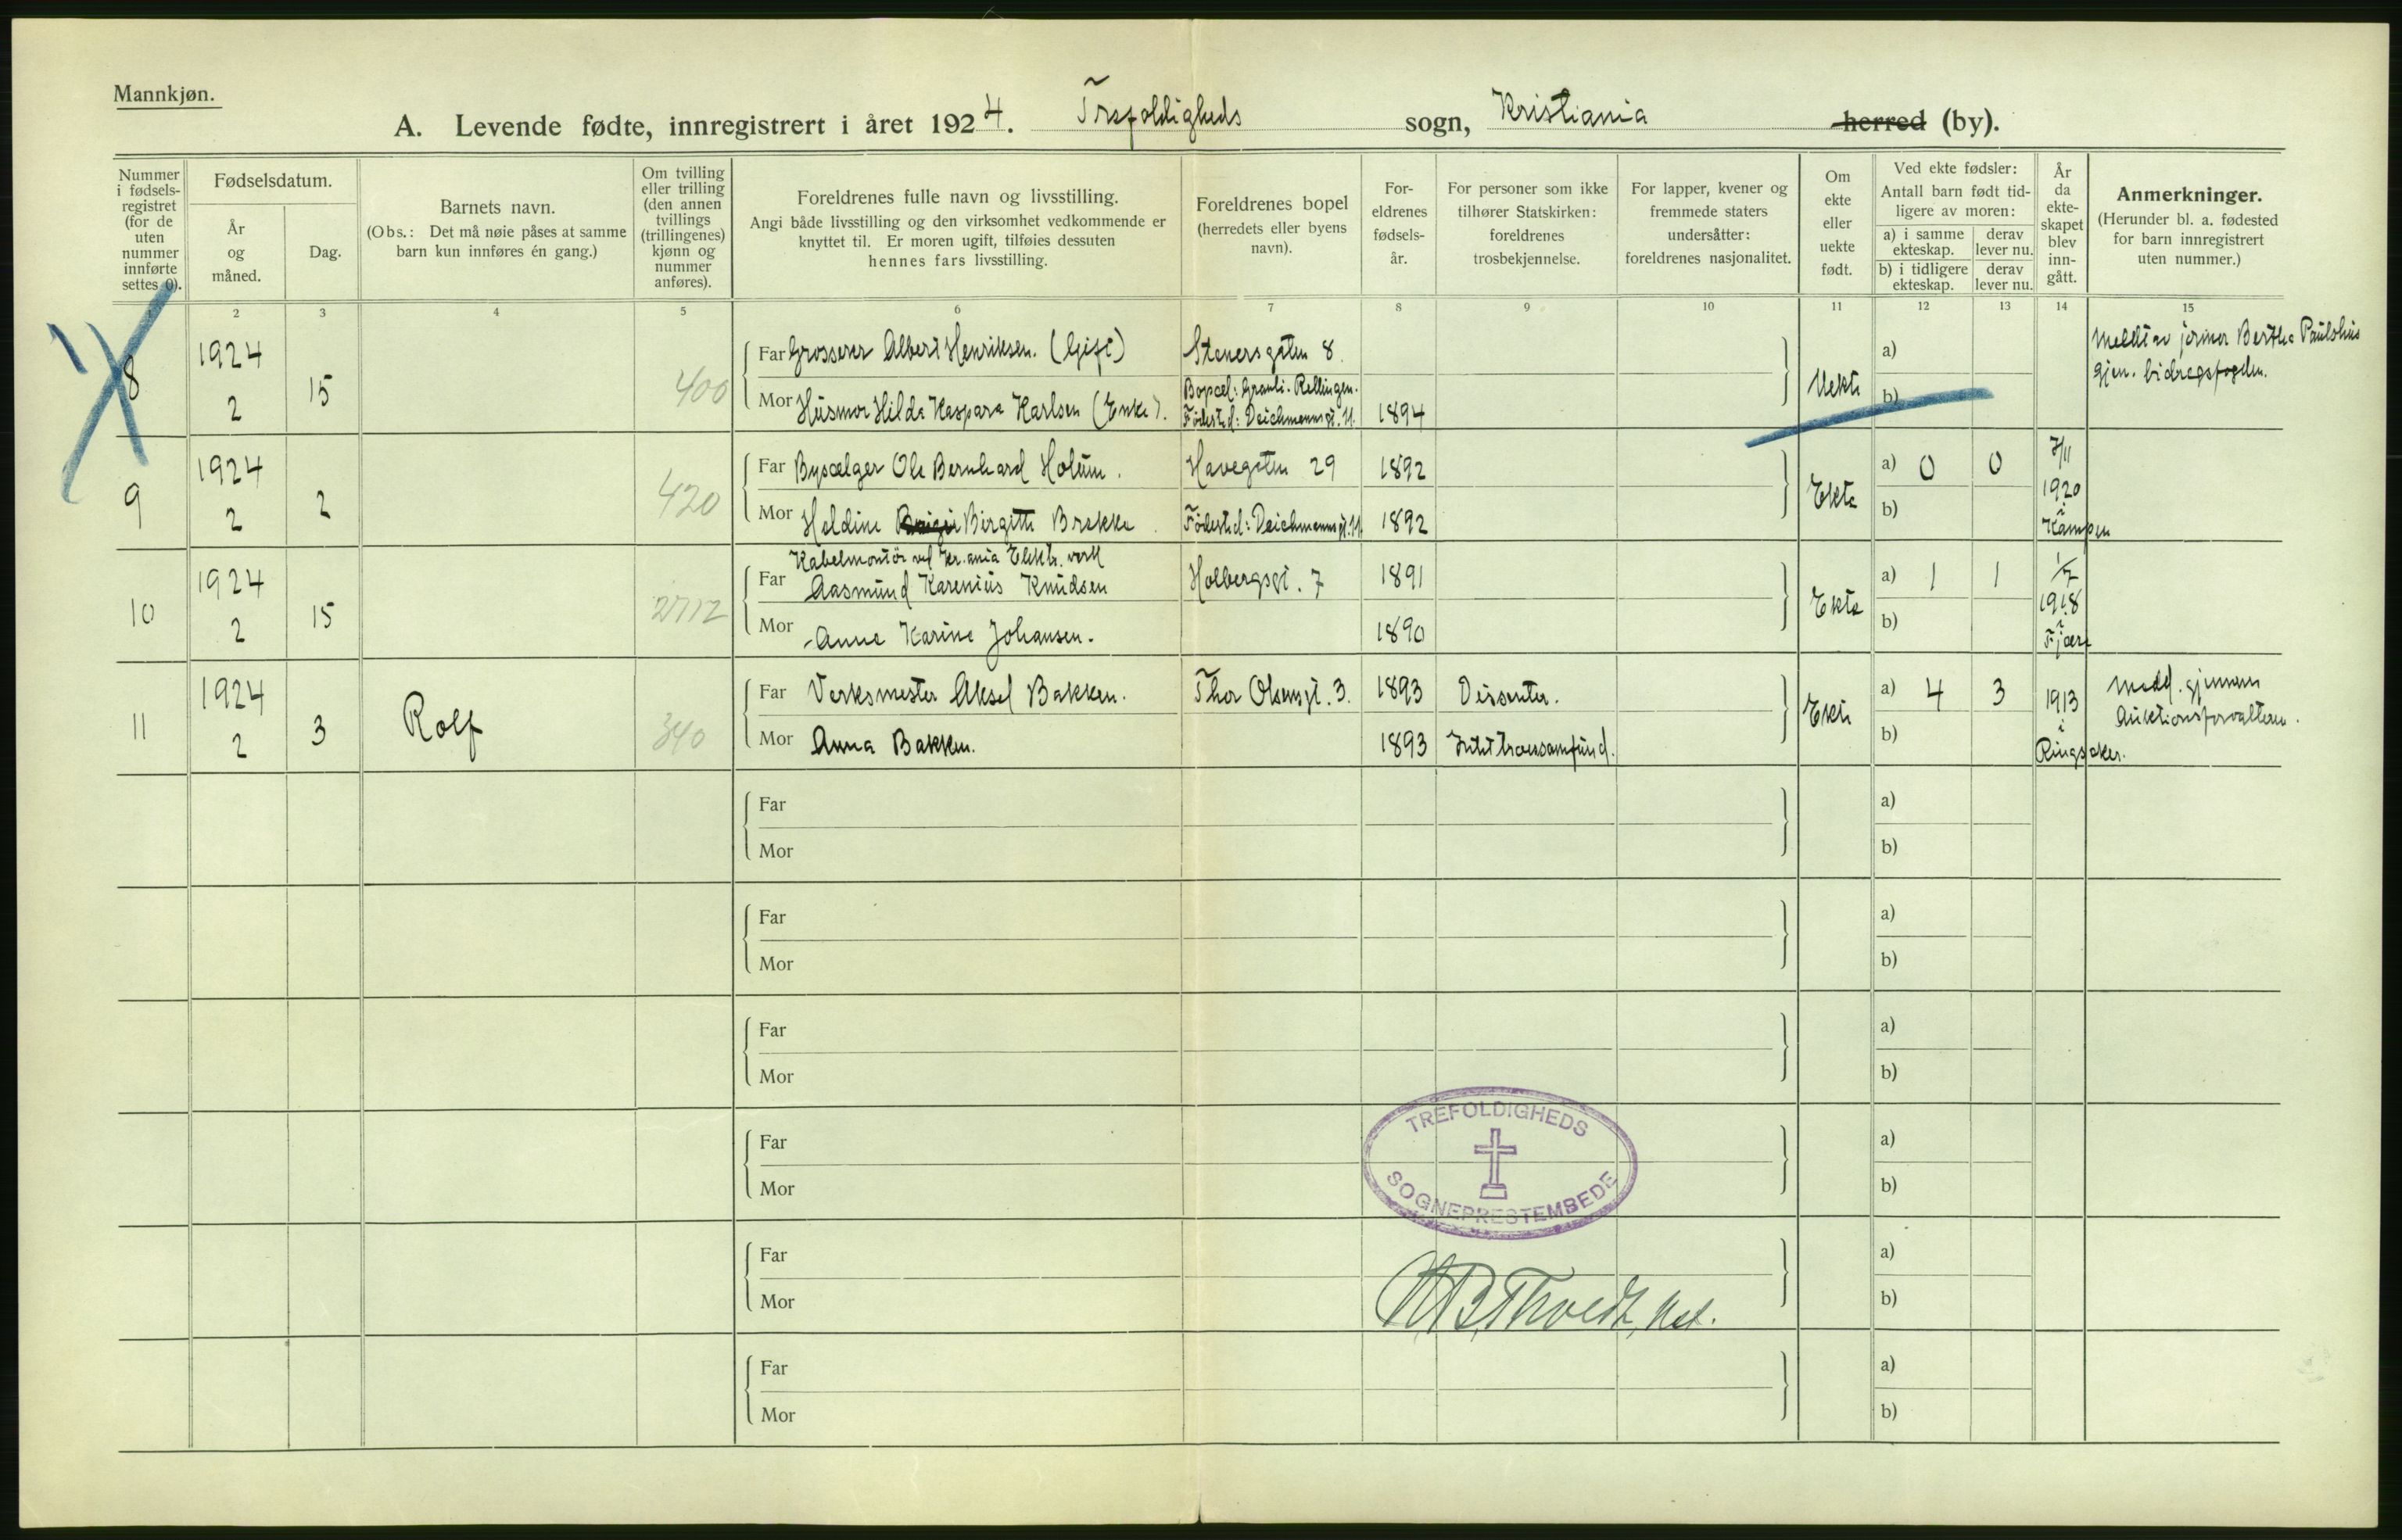 Mannkjøn.
A. Levende fødte, innregistrert i året 1924. Trefoldigheds sogn, Kristiania herred (by).
Nummer i fødsels-registret (for de uten nummer innførte settes 0).
Fødselsdatum.
År og måned.
Dag.
Barnets navn.
(Obs.: Det må nøie påses at samme barn kun innføres én gang.)
Om tvilling eller trilling (den annen tvillings (trillingenes) kjønn og nummer anføres).
Foreldrenes fulle navn og livsstilling.
Angi både livsstilling og den virksomhet vedkommende er knyttet til. Er moren ugift, tilføies dessuten hennes fars livsstilling.
Foreldrenes bopel (herredets eller byens navn).
For-eldrenes fødsels-år.
For personer som ikke tilhører Statskirken: foreldrenes trosbekjennelse.
For lapper, kvener og fremmede staters undersåtter: foreldrenes nasjonalitet.
Om ekte eller uekte født.
Ved ekte fødsler:
Antall barn født tid-ligere av moren:
a) i samme ekteskap. derav lever nu.
b) i tidligere ekteskap. derav lever nu.
År da ekte-skapet blev inn-gått.
Anmerkninger.
(Herunder bl. a. fødested for barn innregistrert uten nummer.)
2 3 4 5 6 7 8 9 10 11 12 13 14 15
8 1924 2 15 400
Far Grosserer Albert Henriksen. (Gift) Stenersgaten 8.
Mor Husmor Hilda Kaspara Karlsen (Enke). Bopæl: Granli. Rellingen. Fødested: Deichmannsgt. 11. 1894
Uekte a) b)
Meldt av jormor Bertha Paulshus
gjen. bidragsfogden.
9 1924 2 2 420
Far Bysælger Ole Bernhard Holum. Havegaten 29 1892
Mor Heldine Birgitte Brekke. Fødested: Deichmannsgt. 11. 1892
Ekte a) 0 0 b) 7/11 1920 i Kampen
10 1924 2 15 2712
Kabelmontør ved Kr.ania Elektr. verk
Far Aasmund Karenius Knudsen Holbergsgt. 7 1891
Mor Anne Karine Johansen. 1890
Ekte a) 1 1 b) 1/7 1918 i Fjære
11 1924 2 3 Rolf 340
Far Verksmester Aksel Bakken. Thor Olsensgt. 3. 1893 Dissenter.
Mor Anna Bakken. 1893 Intet troessamfund.
Ekte a) 4 3 b) 1913 i Ringsaker.
Medd. gjennem
Auktionsforvalteren.
Far
Mor
a)
b)
Far
Mor
a)
b)
Far
Mor
a)
b)
Far
Mor
a)
b)
Far
Mor
a)
b)
Far
Mor
a)
b)
TREFOLDIGHEDS
SOGNEPRESTEMBEDE